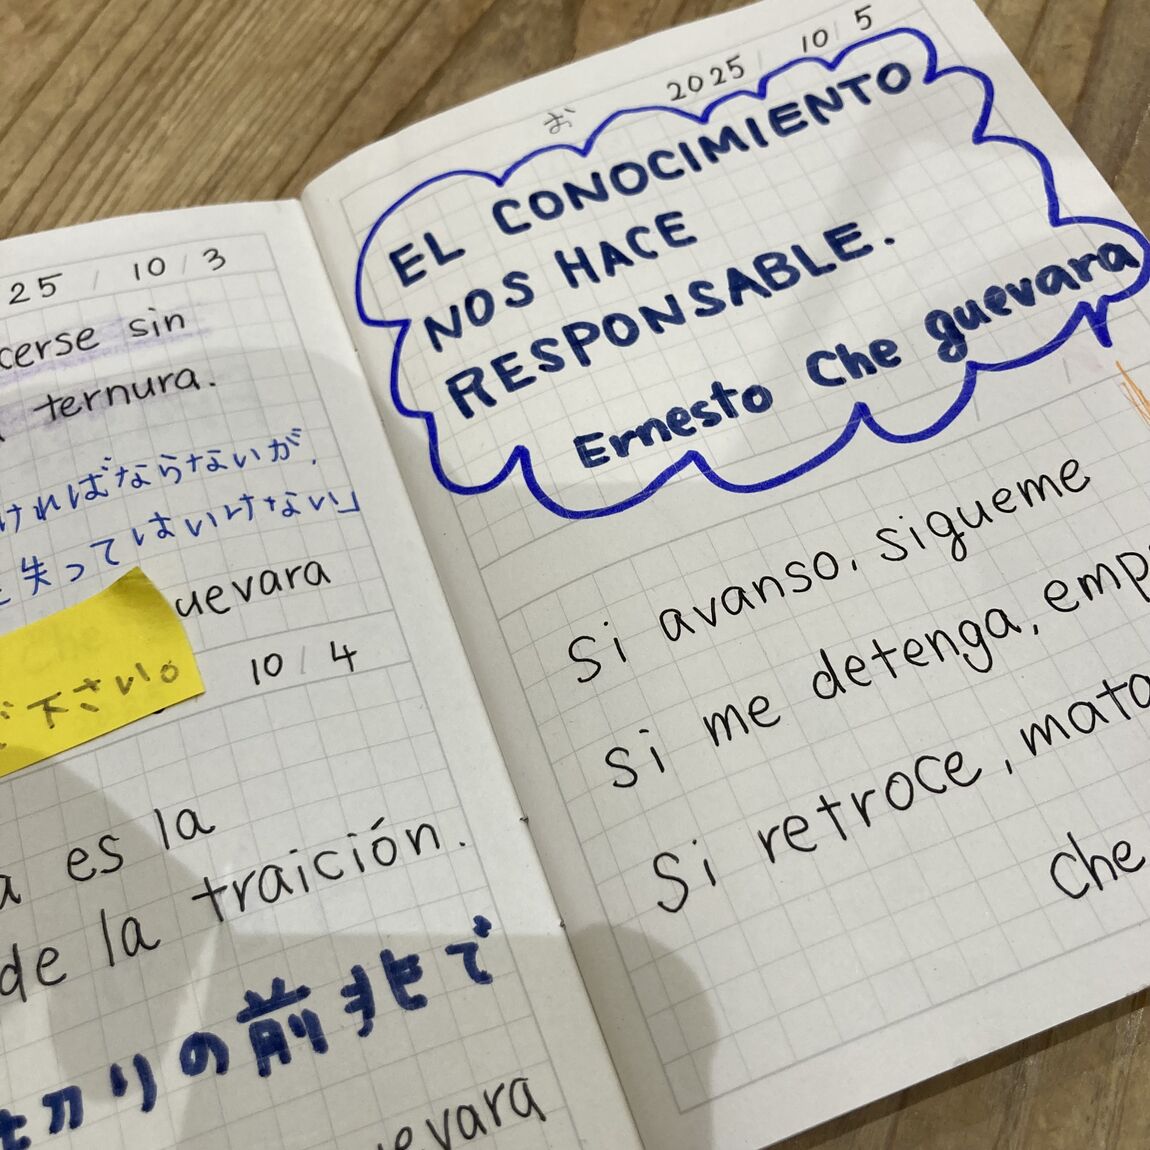 25 / 10 / 3
cerse sin
ternura.
ければならないが、
失ってはいけない」
uevara
下さい。
10 / 4
a es la
de la traición.
の前兆で
evara
お
2025 / 10 / 5
EL CONOCIMIENTO
NOS HACE
RESPONSABLE.
Ernesto Che guevara
Si avanso, sigueme
Si me detenga, emp
Si retroce, mata
Che